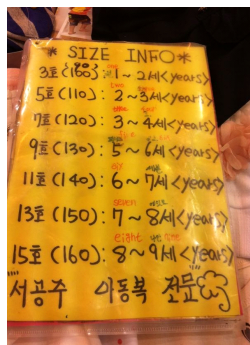 * SIZE INFO *
3호(100): 1~2세<years>
5호(110): 2~3세<years>
7호(120): 3~4세<years>
9호(130): 5~6세<years>
11호(140): 6~7세<years>
seven
13호(150): 7~8세<years>
eight
15호(160): 8~9세<years>
서공주 아동복 전문